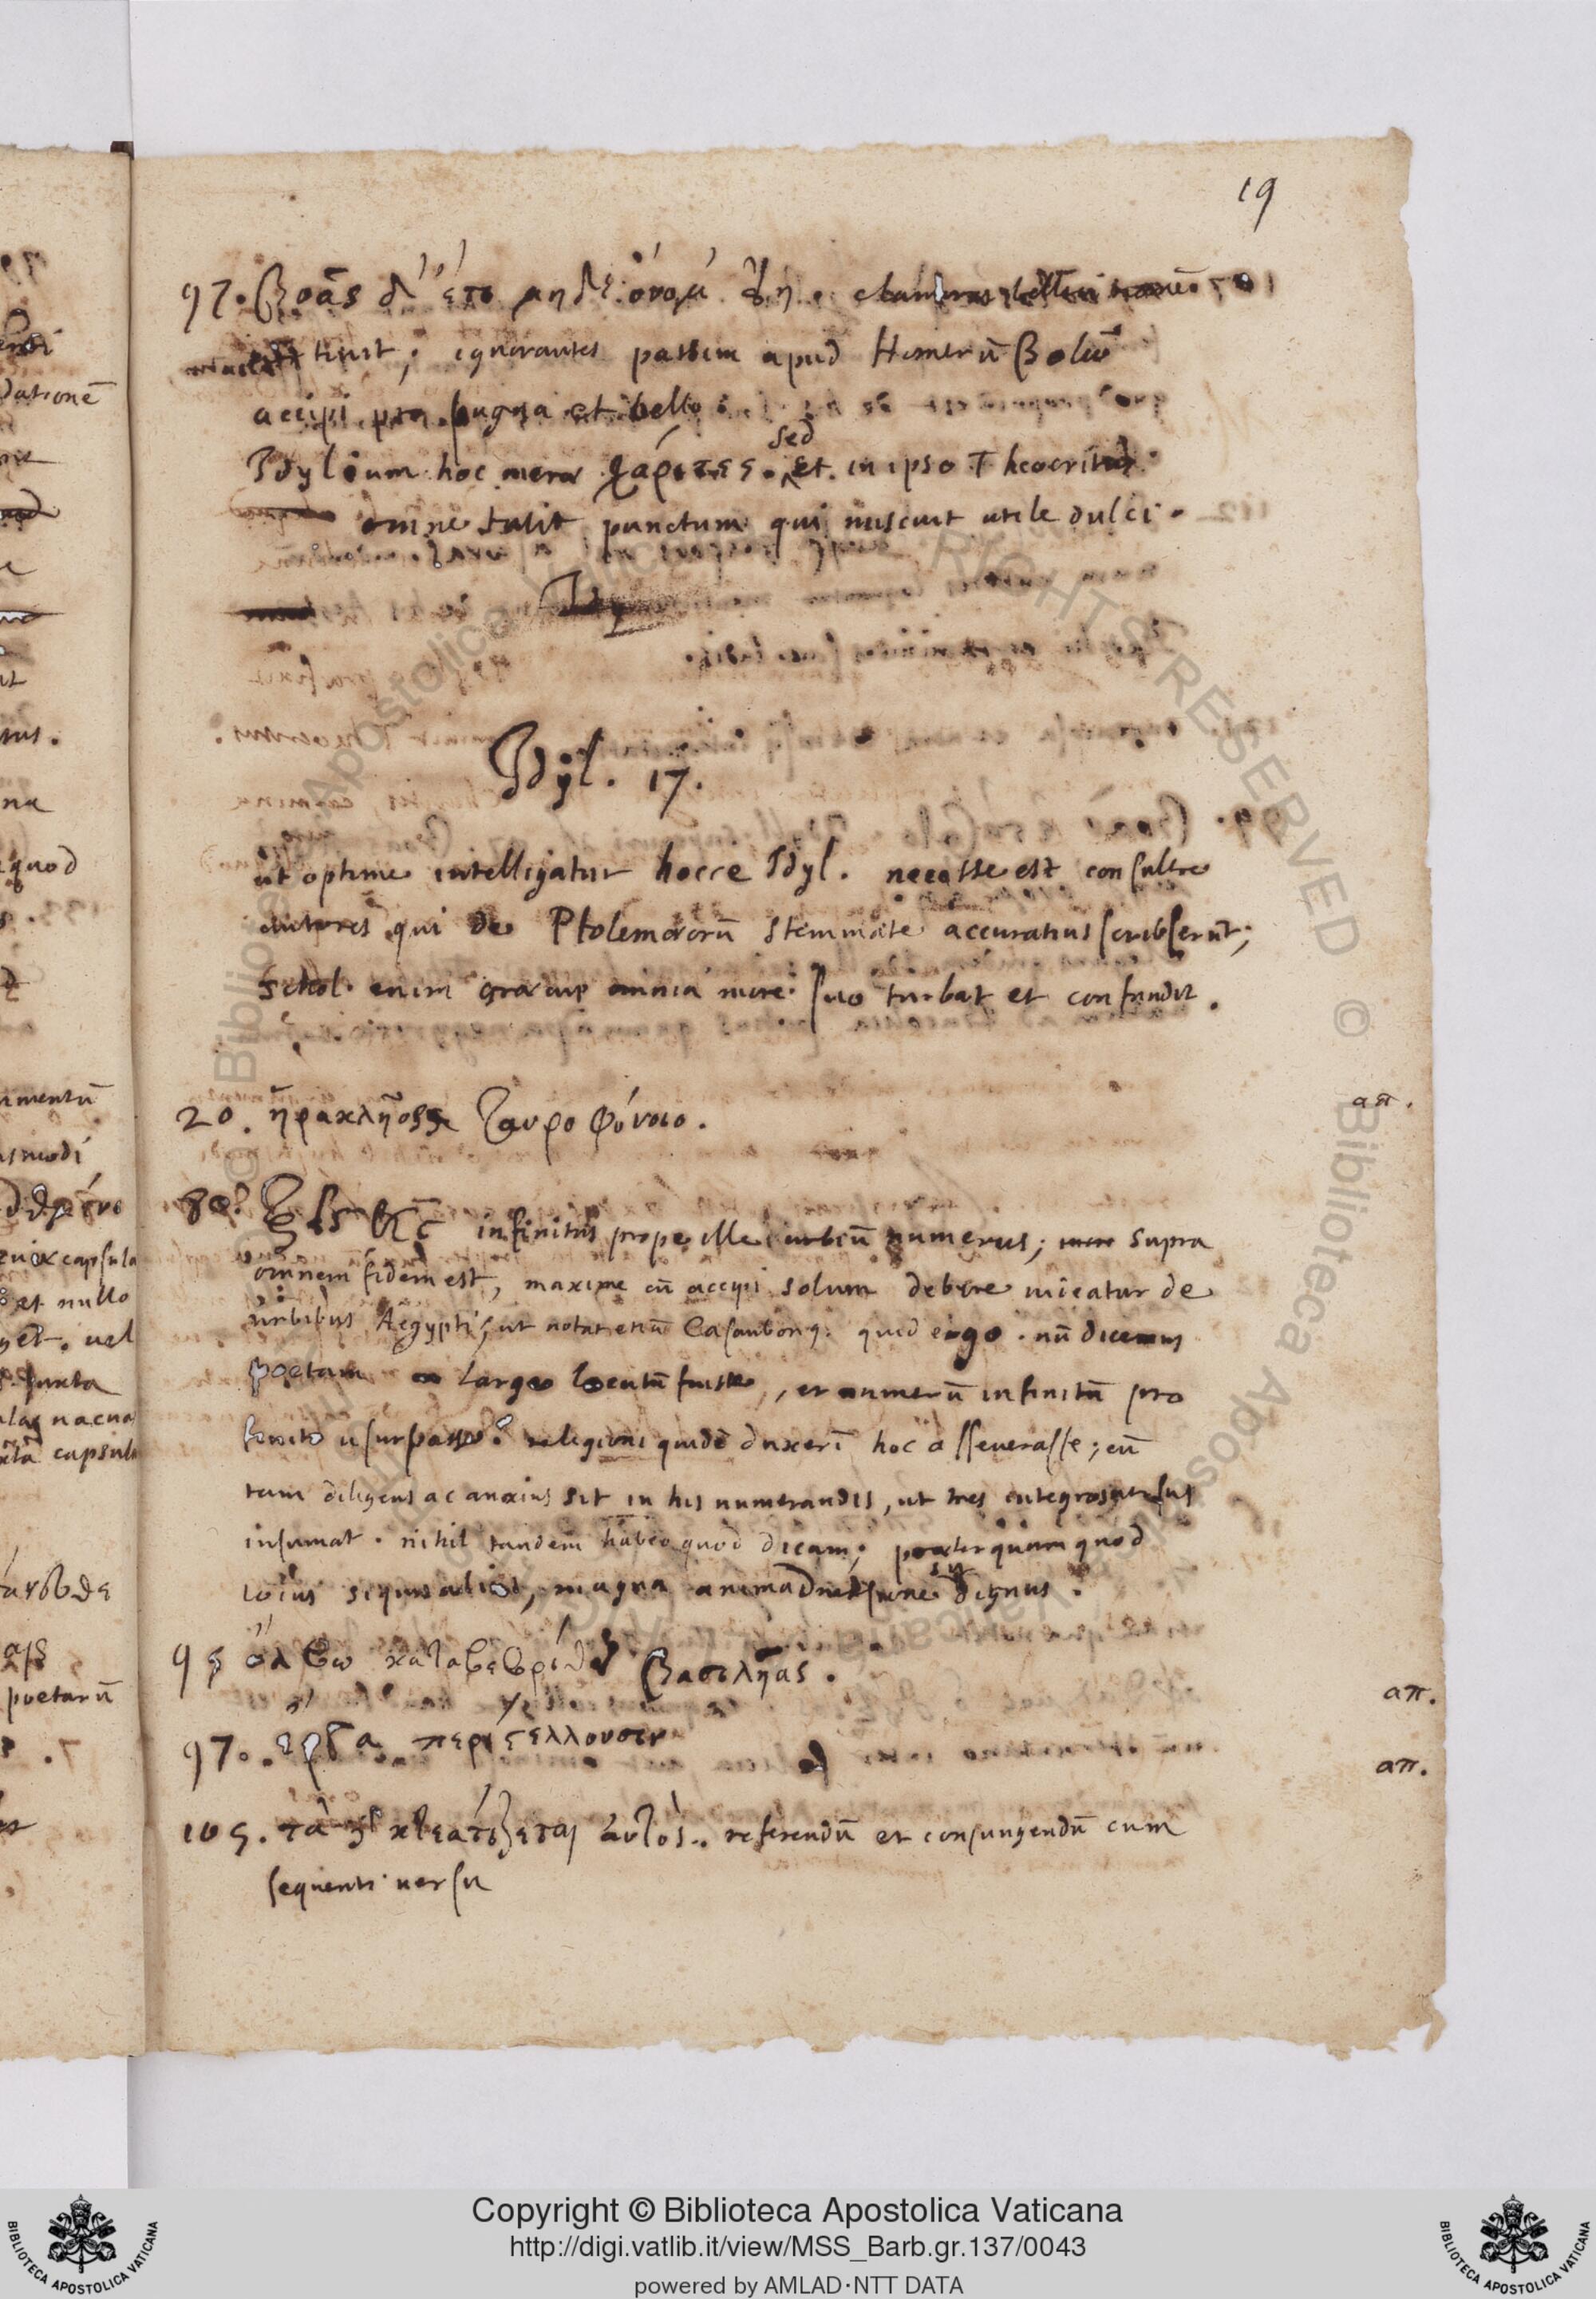 19
97. βοᾶς δ' ἔτι μηδ' ὄνομ' εἴη.
tiunt; ignorantes passim apud Homerū βοὴν
accipi pro pugna et bello.
Idylium hoc meræ χάριτες. sed et in ipso Theocritus
omne tulit punctum qui miscuit utile dulci.
Idyl. 17.
ut optime intelligatur hocce Idyl. necesse est consulere
autores qui de Ptolemæorū stemmate accuratius scribserūt;
schol. enim græcus omnia more suo turbat et confundit.
20. ἡρακλῆος ταυροφόνοιο. απ.
80. infinitus prope ille urbiū numerus; supra
omnem fidem est, maxime cū accipi solum debere videatur de
urbibus Aegypti, ut notat etiā Casaubonq. quid ergo. nū dicemus
poetam large locutū fuisse, et numerū infinitū pro
finito usurpasse? religioni quidē duxerī hoc asseverasse; cū
tam diligens ac anxius sit in his numerandis, ut tres integros versus
insumat. nihil tandem habeo quod dicam; præterquam quod
locus siquis alius, magna animadversione dignus.
95 ὄλβῳ καταβεβρίθει βασιλῆας. απ.
97. ἔργα περιστέλλουσιν απ.
105. τὰ δὲ κτεατίζεται αὐτός. referendū et conjungendū cum
sequenti versu
Copyright © Biblioteca Apostolica Vaticana
http://digi.vatlib.it/view/MSS_Barb.gr.137/0043
powered by AMLAD·NTT DATA